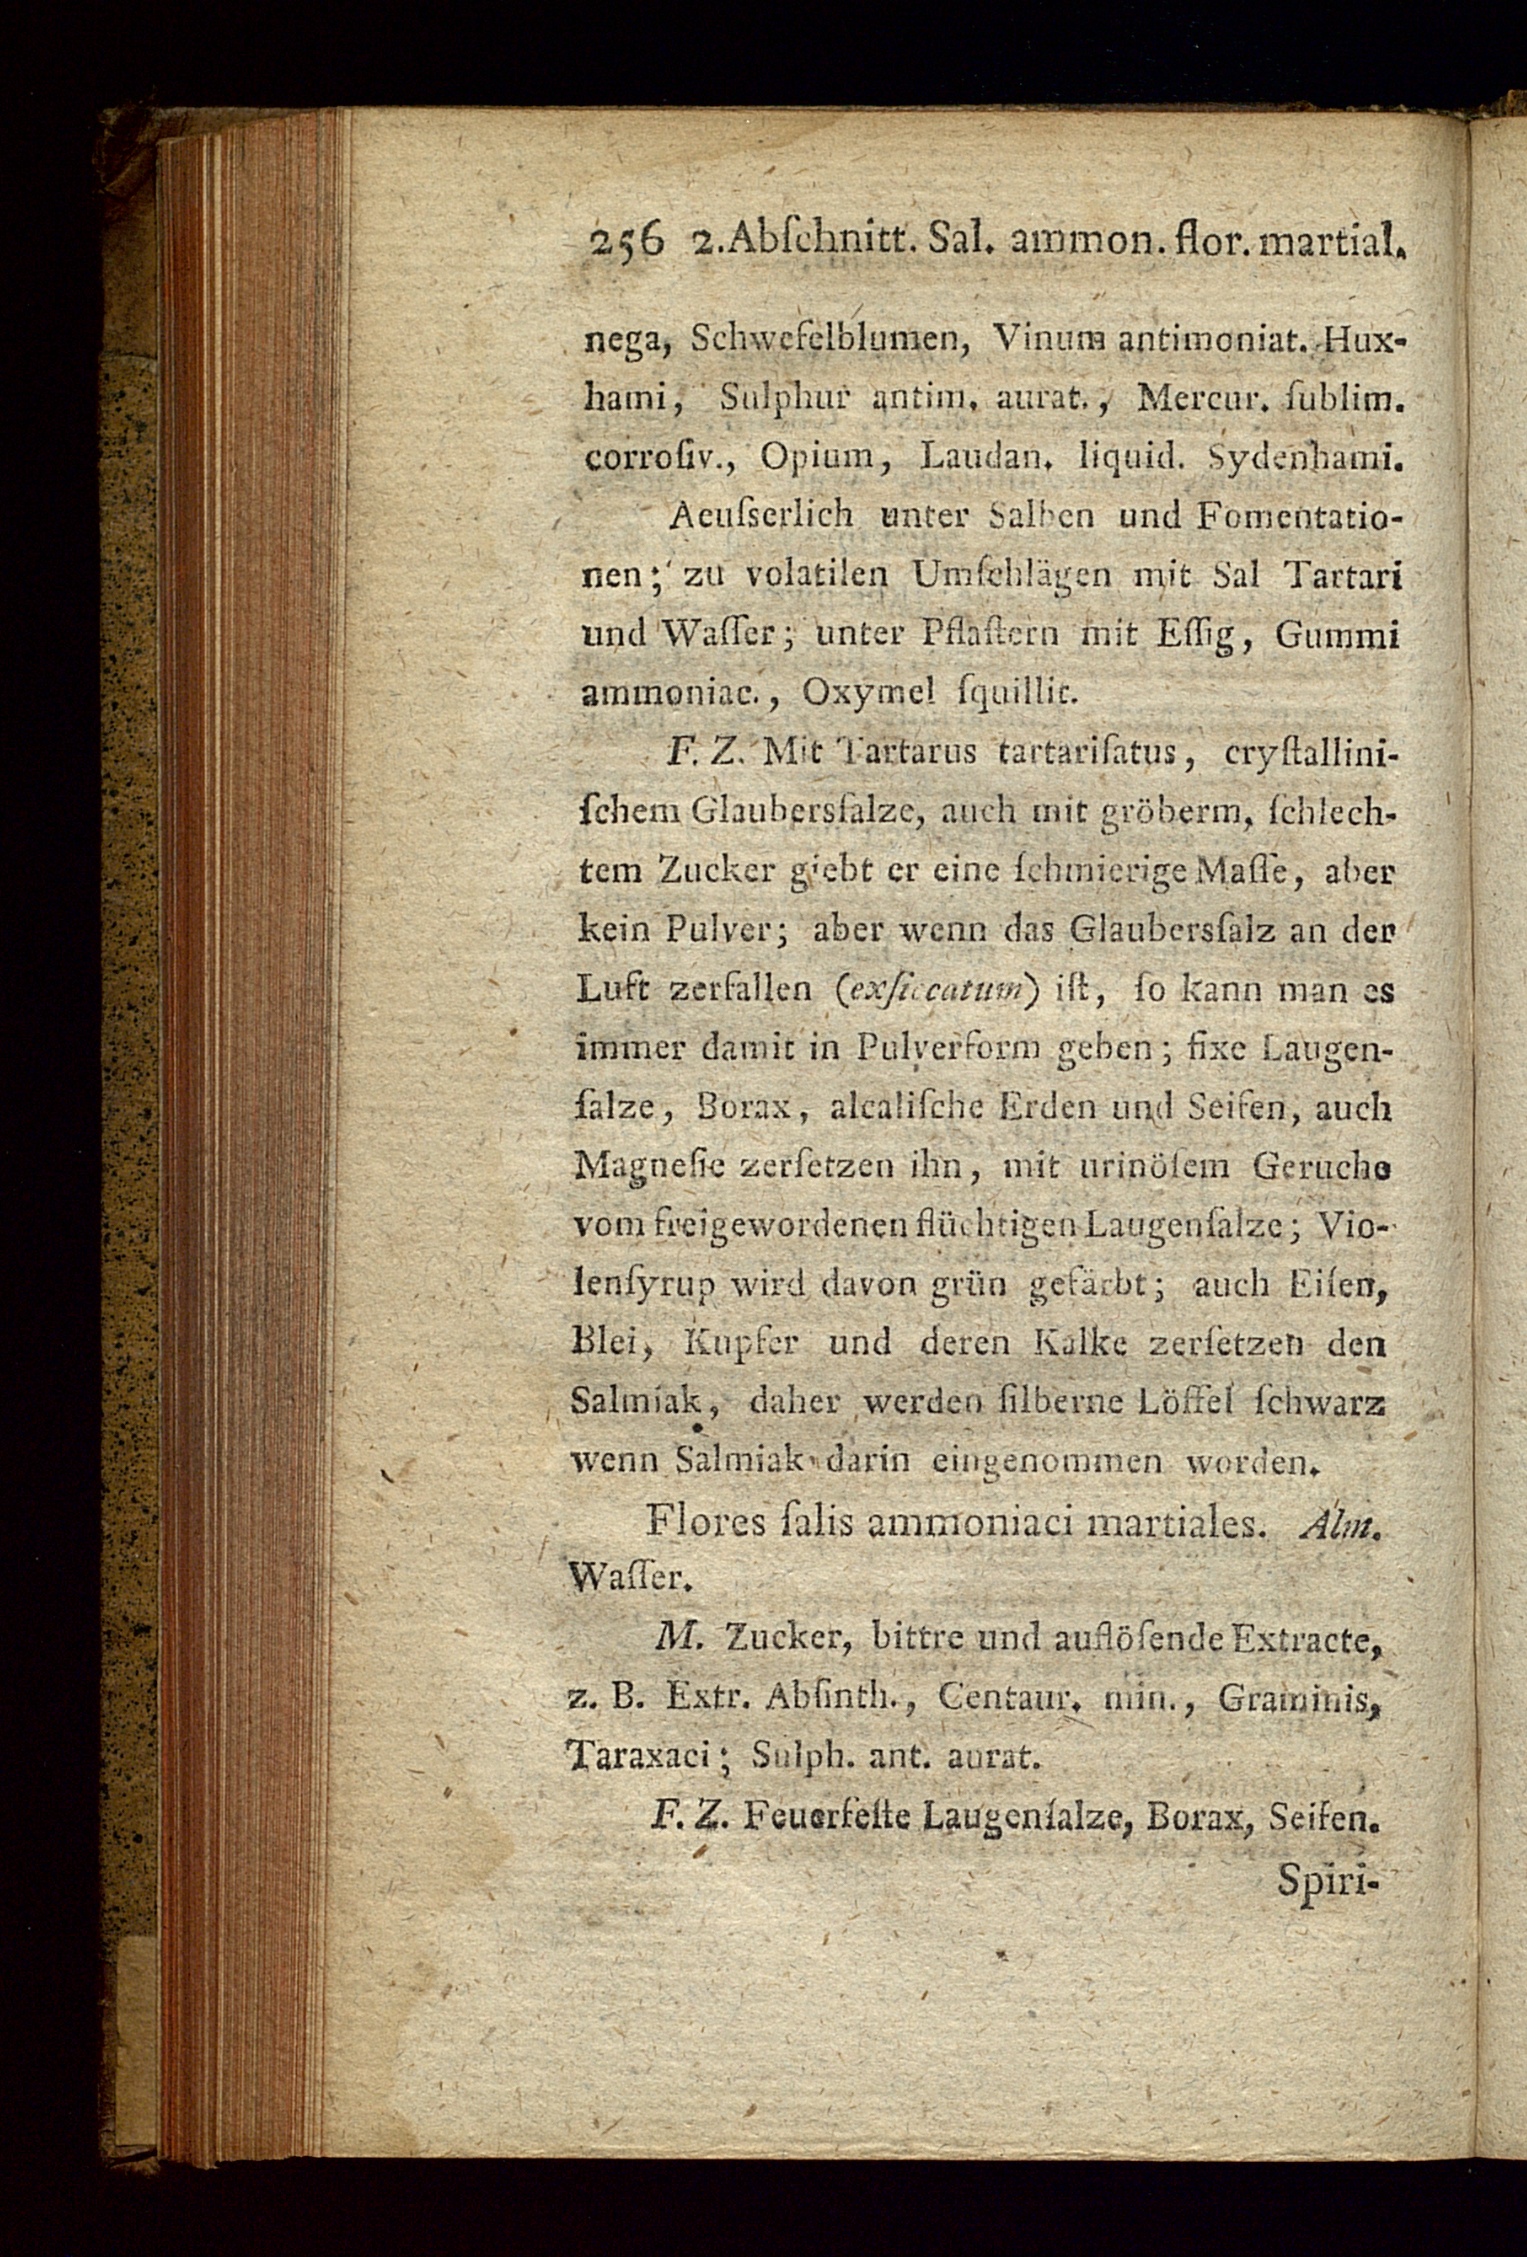 256 2. Abſchnitt. Sal. ammon. flor. martial.
nega, Schwefelblumen, Vinum antimoniat. Hux-
hami, Sulphur antim. aurat., Mercur. ſublim.
corroſiv., Opium, Laudan. liquid. Sydenhami.
Aeuſserlich unter Salben und Fomentatio-
nen; zu volatilen Umſchlägen mit Sal Tartari
und Waſſer; unter Pflaſtern mit Eſſig, Gummi
ammoniac., Oxymel ſquillit.
F. Z. Mit Tartarus tartariſatus, cryſtallini-
ſchem Glaubersſalze, auch mit gröberm, ſchlech-
tem Zucker giebt er eine ſchmierige Maſſe, aber
kein Pulver; aber wenn das Glaubersſalz an der
Luft zerfallen (exſiccatum) iſt, ſo kann man es
immer damit in Pulverform geben; fixe Laugen-
ſalze, Borax, alcaliſche Erden und Seifen, auch
Magneſie zerſetzen ihn, mit urinöſem Geruche
vom freigewordenen flüchtigen Laugenſalze; Vio-
lenſyrup wird davon grün gefärbt; auch Eiſen,
Blei, Kupfer und deren Kalke zerſetzen den
Salmiak, daher werden ſilberne Löffel ſchwarz
wenn Salmiak darin eingenommen worden.
Flores ſalis ammoniaci martiales. Alm.
Waſſer.
M. Zucker, bittre und auflöſende Extracte,
z. B. Extr. Abſinth., Centaur. min., Graminis,
Taraxaci; Sulph. ant. aurat.
F. Z. Feuerfeſte Laugenſalze, Borax, Seifen.
Spiri-